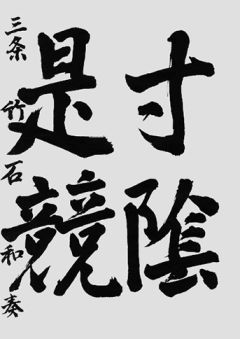 寸陰
是競
三条 竹石和奏